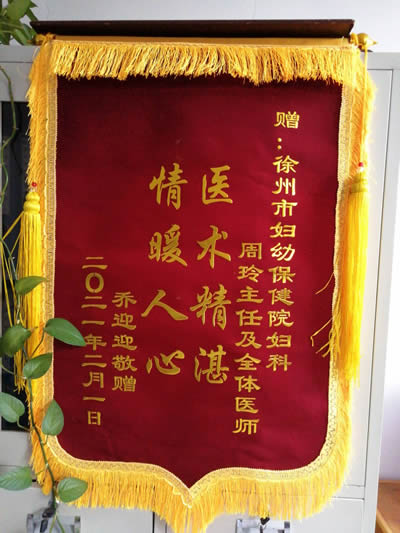 赠：徐州市妇幼保健院妇科
周玲主任及全体医师
医术精湛
情暖人心
乔迎迎敬赠
二〇二一年二月一日